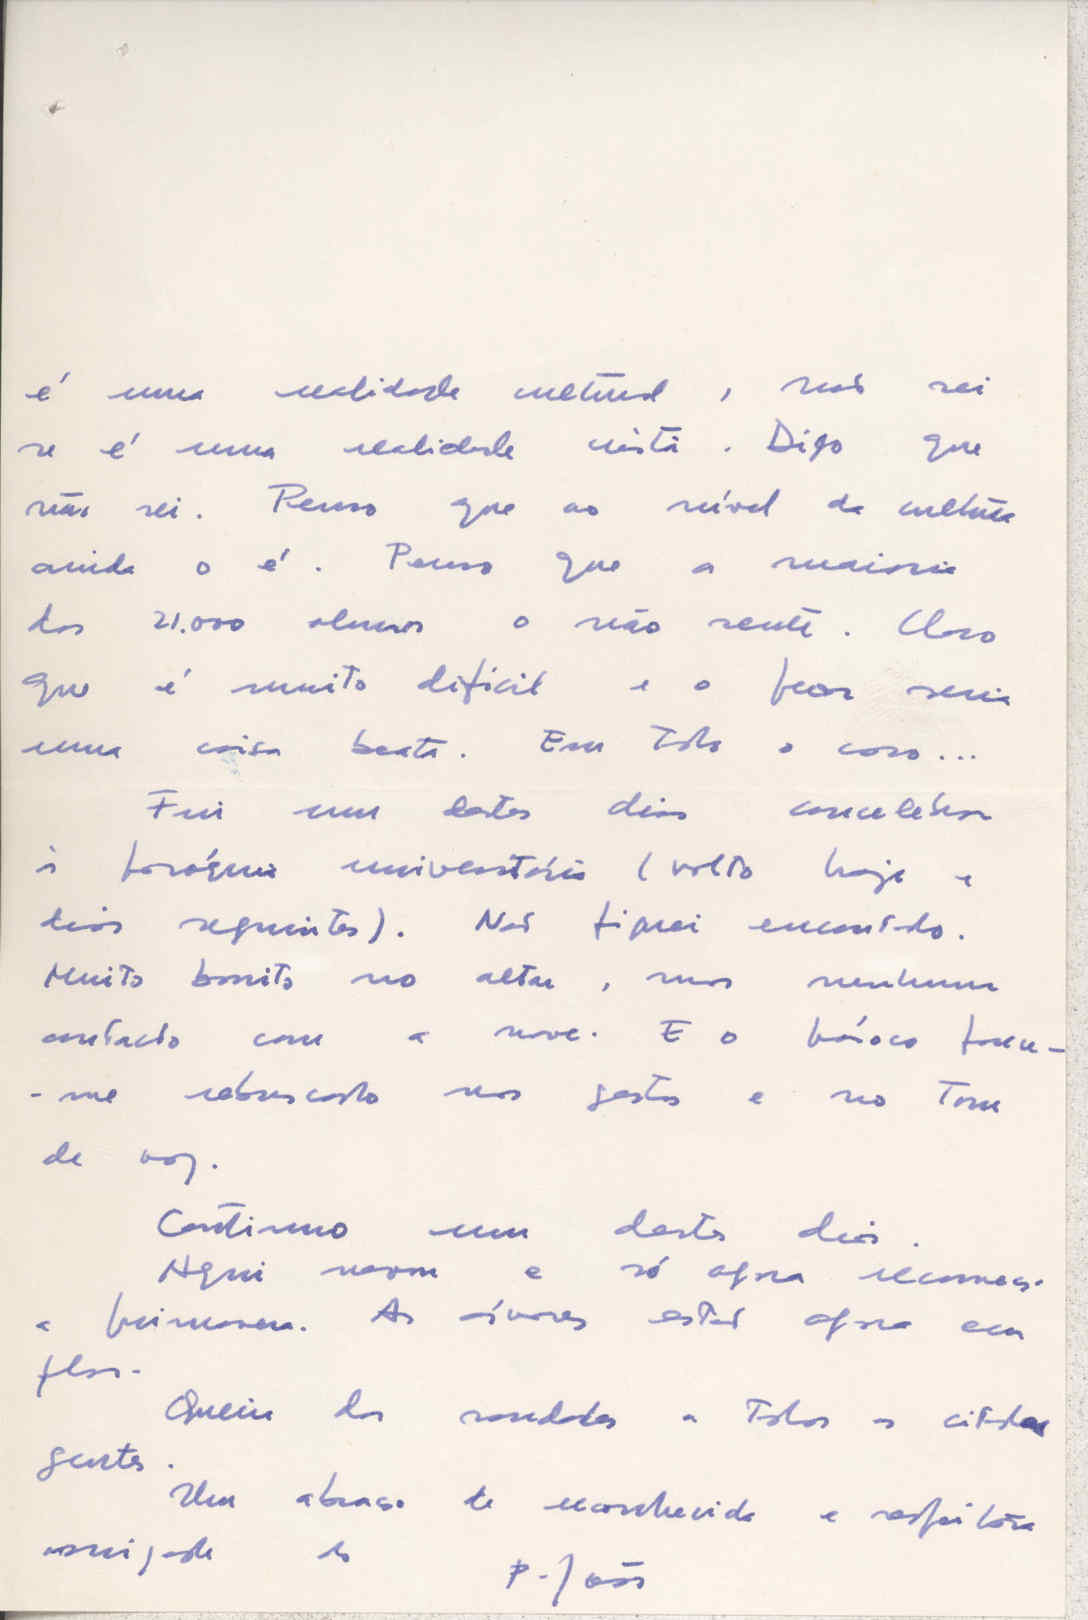 é uma realidade cultural, não sei
se é uma realidade cristã. Digo que
não sei. Penso que ao nível da cultura
ainda o é. Penso que a maioria
dos 21.000 alunos o não sente. Claro
que é muito difícil e o pior seria
uma coisa beata. Em todo o caso...
Fui um destes dias concelebrar
à paróquia universitária (volto hoje e
dias seguintes). Não fiquei encantado.
Muito bonito no altar, mas nenhum
contacto com a nave. E o pároco pareceu-
-me rebuscado nos gestos e no tom
de voz.
Continuo um destes dias.
Aqui nevou e só agora recomeça
a primavera. As árvores estão agora em
flor.
Queira dar saudades a todos as
gentes.
Um abraço de reconhecida e respeitosa
amizade do
P. João